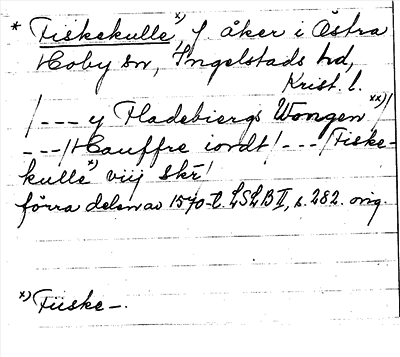 * Fiskekulle x), f. åker i Östra
Hoby sn, Ingelstads hd,
Krist. l.
/--- y Fladebiergs Wongen xx)//
---/Hauffre iordt/---/Fiske-
kulle x) viij skr̄/
förra delen av 1570-t. LSLB II, s. 282. orig.
x) Fiiske-.